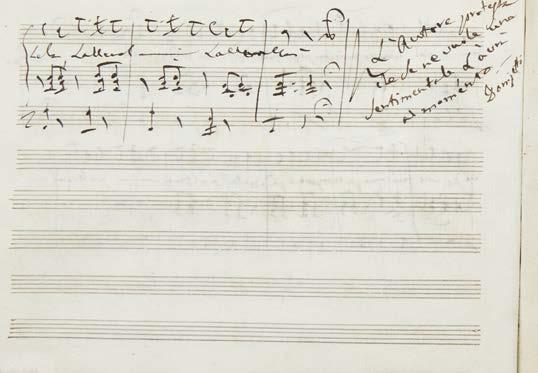 la la Lalleral Lallerallera
L'Autore protesta
se ne vuole una
sentimentale l'avrà
al momento
Donizetti